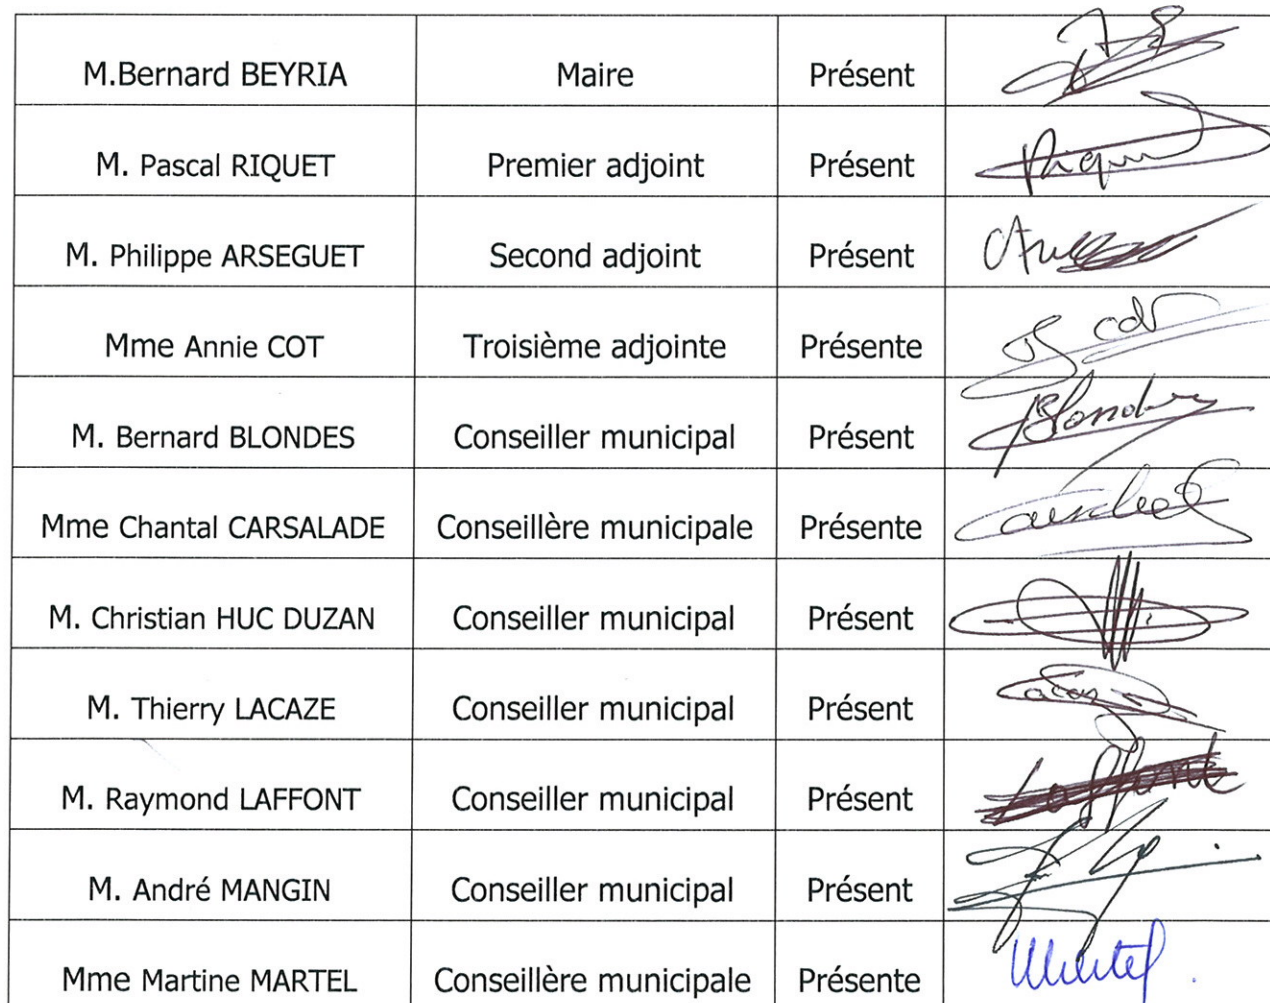 M.Bernard BEYRIA Maire Présent
M. Pascal RIQUET Premier adjoint Présent Riquet
M. Philippe ARSEGUET Second adjoint Présent
Mme Annie COT Troisième adjointe Présente Cot
M. Bernard BLONDES Conseiller municipal Présent Blondes
Mme Chantal CARSALADE Conseillère municipale Présente
M. Christian HUC DUZAN Conseiller municipal Présent
M. Thierry LACAZE Conseiller municipal Présent
M. Raymond LAFFONT Conseiller municipal Présent Laffont
M. André MANGIN Conseiller municipal Présent
Mme Martine MARTEL Conseillère municipale Présente